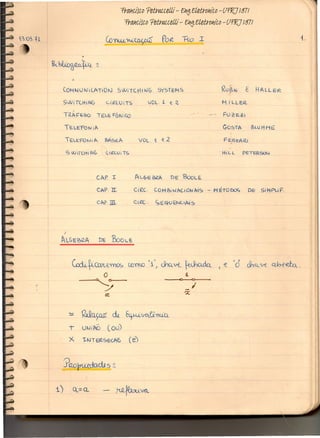 Francisco Petruccelli - Eng. Eletronico - UFRJ 1971
Francisco Petruccelli - Eng. Eletronico - UFRJ 1971
13.03.71 COMUNICAÇÃO POR FIO I 1.
Bibliografia :
COMMUNICATION SWITCHING SYSTEMS & HALLER
SWITCHING CIRCUITS VOL 1 E 2 MILLER
TRÁFEGO TELEFÔNICO
TELEFONIA COSTA
TELEFONIA BÁSICA VOL 1 E 2 FERRARI
SWITCHING CIRCUITS HILL PETERSON
CAP. I ALGEBRA DE BOOLE
CAP. II CIRC. COMBINACIONAIS - MÉTODOS DE SIMPLIF.
CAP. III CIRC. SEQUENCIAIS
ALGEBRA DE BOOLE
Codificaremos como '1', chave fechada, e '0' chave aberta.
= Relação de Equivalência
+ UNIÃO (OU)
X INTERSEÇÃO (E)
Propriedades :
1) a = a - reflexiva